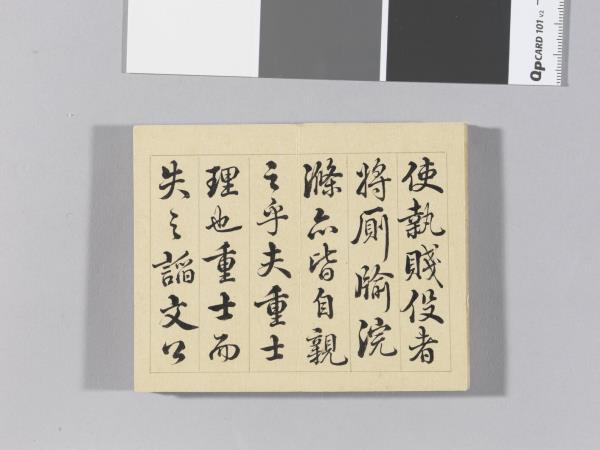 使執賤役者
將厠牏浣
滌亦皆自親
之乎夫重士
理也重士而
失之謟文公
QPCARD 101 v2